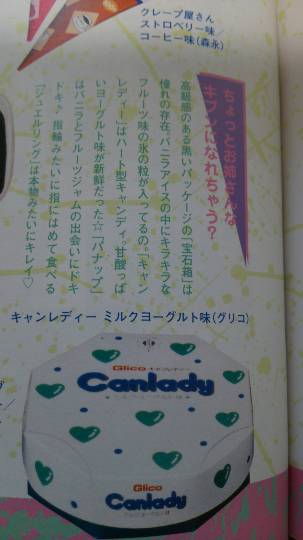 クレープ屋さん
ストロベリー味/
コーヒー味(森永)
ちょっとお姉さんな
キブンになれちゃう?
高級感のある黒いパッケージの「宝石箱」は
憧れの存在。バニラアイスの中にキラキラな
フルーツ味の氷の粒が入ってるの。「キャン
レディー」はハート型キャンディ。甘酸っぱ
いヨーグルト味が新鮮だった☆「パナップ」
はバニラとフルーツジャムの出会いにドキ
ドキ♪ 指輪みたいに指にはめて食べる
「ジュエルリング」は本物みたいにキレイ♡
キャンレディー ミルクヨーグルト味(グリコ)
Glico キャンレディー
Canlady
ミルクヨーグルト味
Glico
Canlady
ミルクヨーグルト味